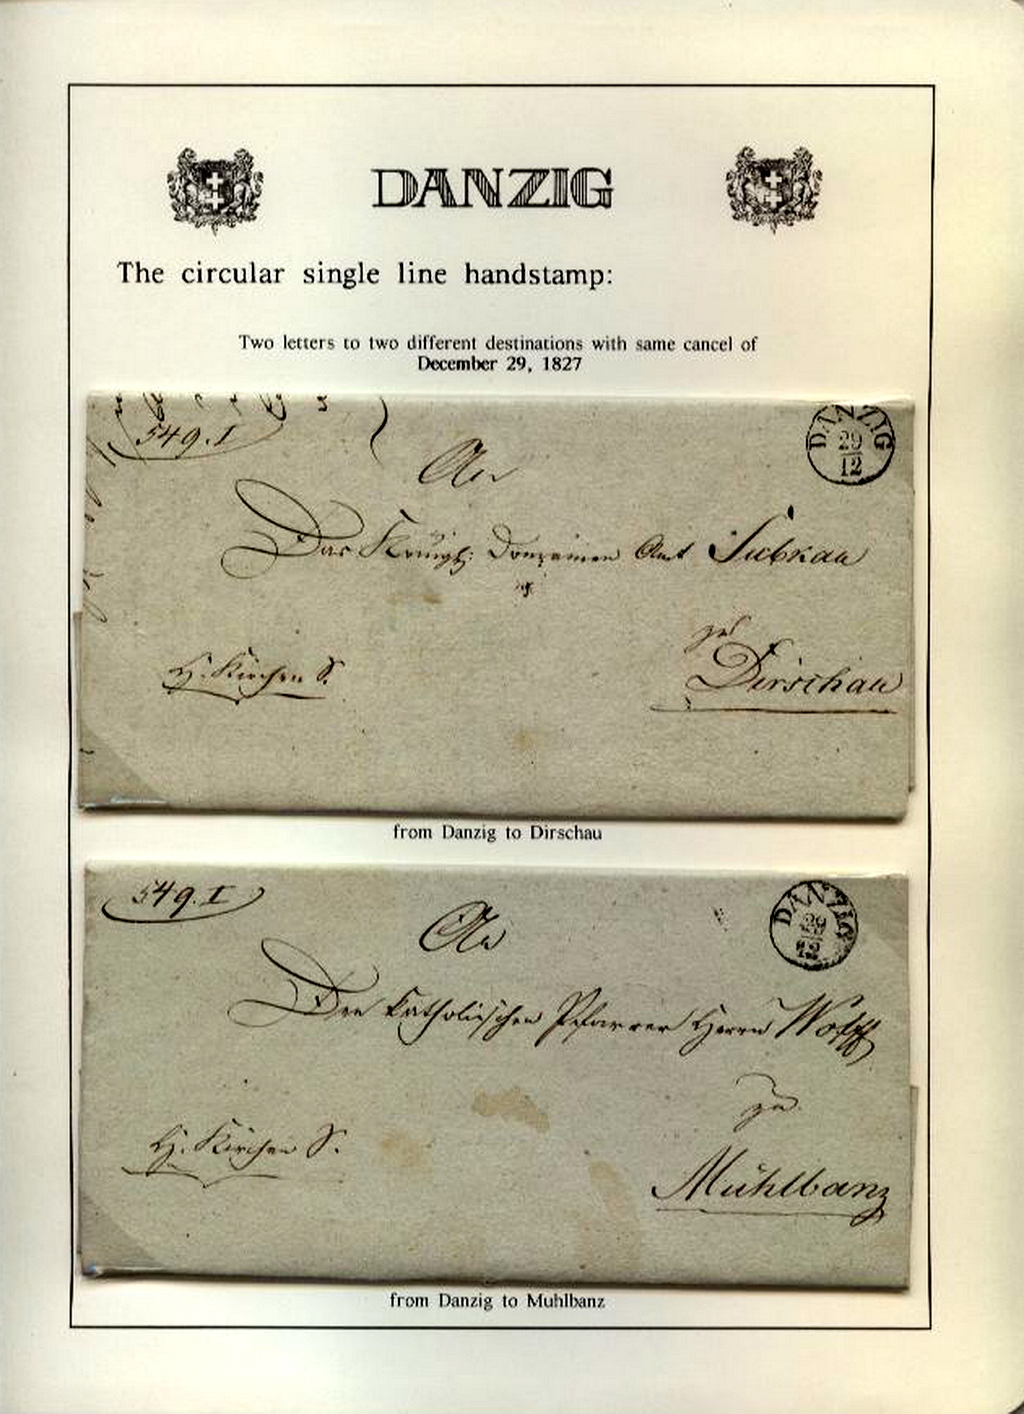 DANZIG
The circular single line handstamp:
Two letters to two different destinations with same cancel of
December 29, 1827
549.I
DANZIG
29
12
An
Das Königl: Domainen Amt Subkau
zu
Dirschau
H. Kirchen S.
from Danzig to Dirschau
549.I
DANZIG
29
12
An
Den katholischen Pfarrer Herrn Wolff
zu
Mühlbanz
H. Kirchen S.
from Danzig to Muhlbanz